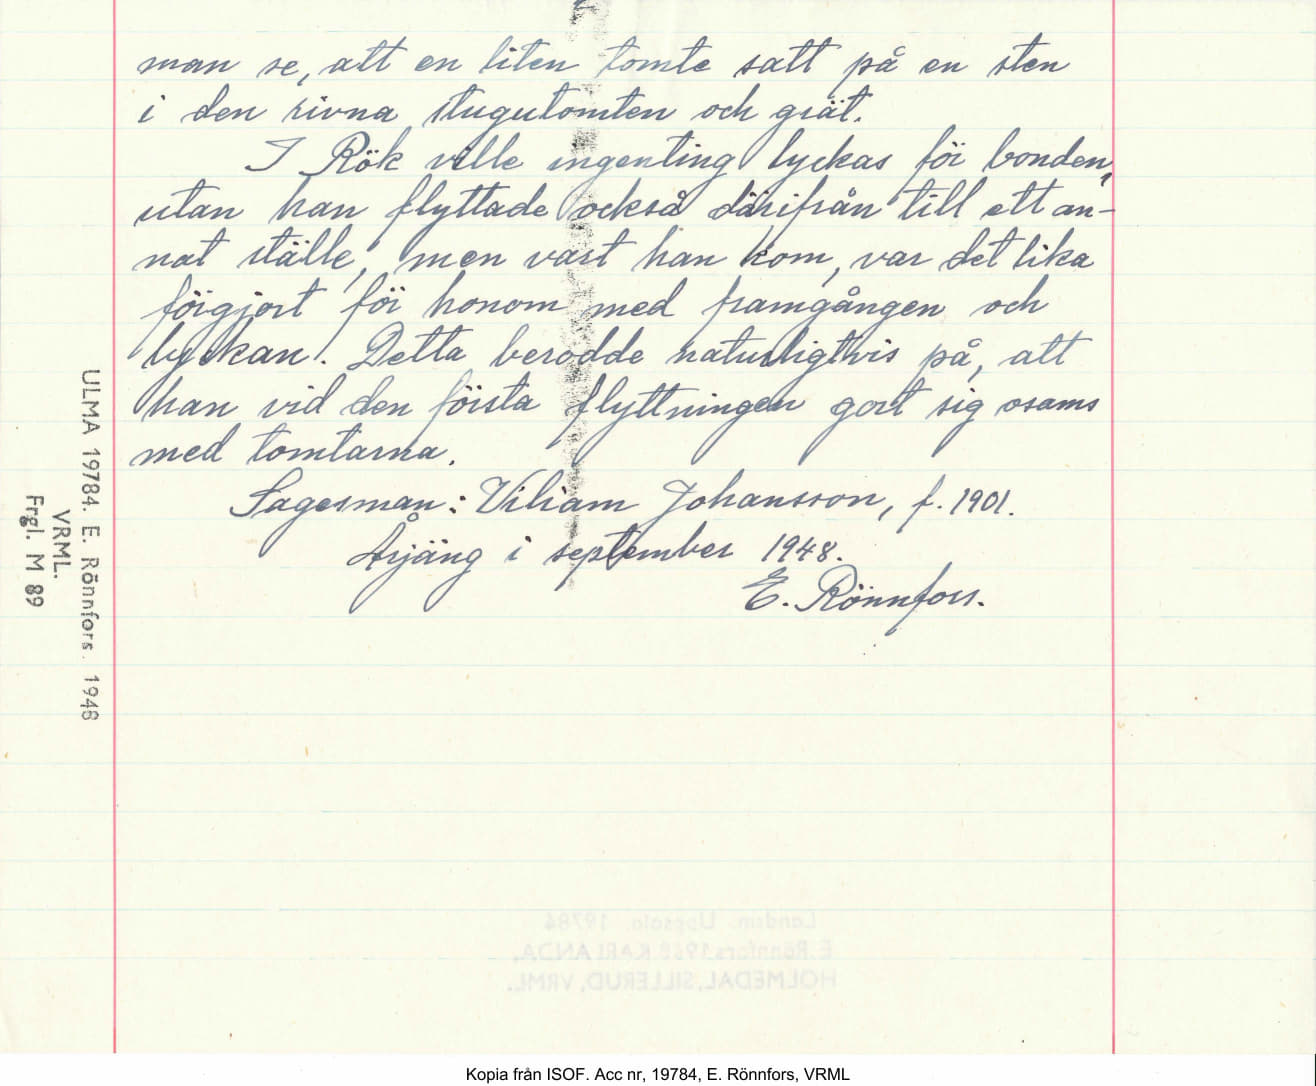 man se, att en liten tomte satt på en sten
i den rivna stugutomten och grät.
I Rök ville ingenting lyckas för bonden,
utan han flyttade också därifrån till ett an-
nat ställe, men vart han kom, var det lika
förgjort för honom med framgången och
lyckan. Detta berodde naturligtvis på, att
han vid den första flyttningen gort sig osams
med tomtarna.
Sagesman: Viliam Johansson, f. 1901.
Årjäng i september 1948.
E. Rönnfors.
ULMA 19784. E. Rönnfors. 1948
VRML.
Frgl. M 89
Landsm. Uppsala 19784
E. Rönnfors 1948 KARLANDA,
HOLMEDAL, SILLERUD, VRML.
Kopia från ISOF. Acc nr, 19784, E. Rönnfors, VRML